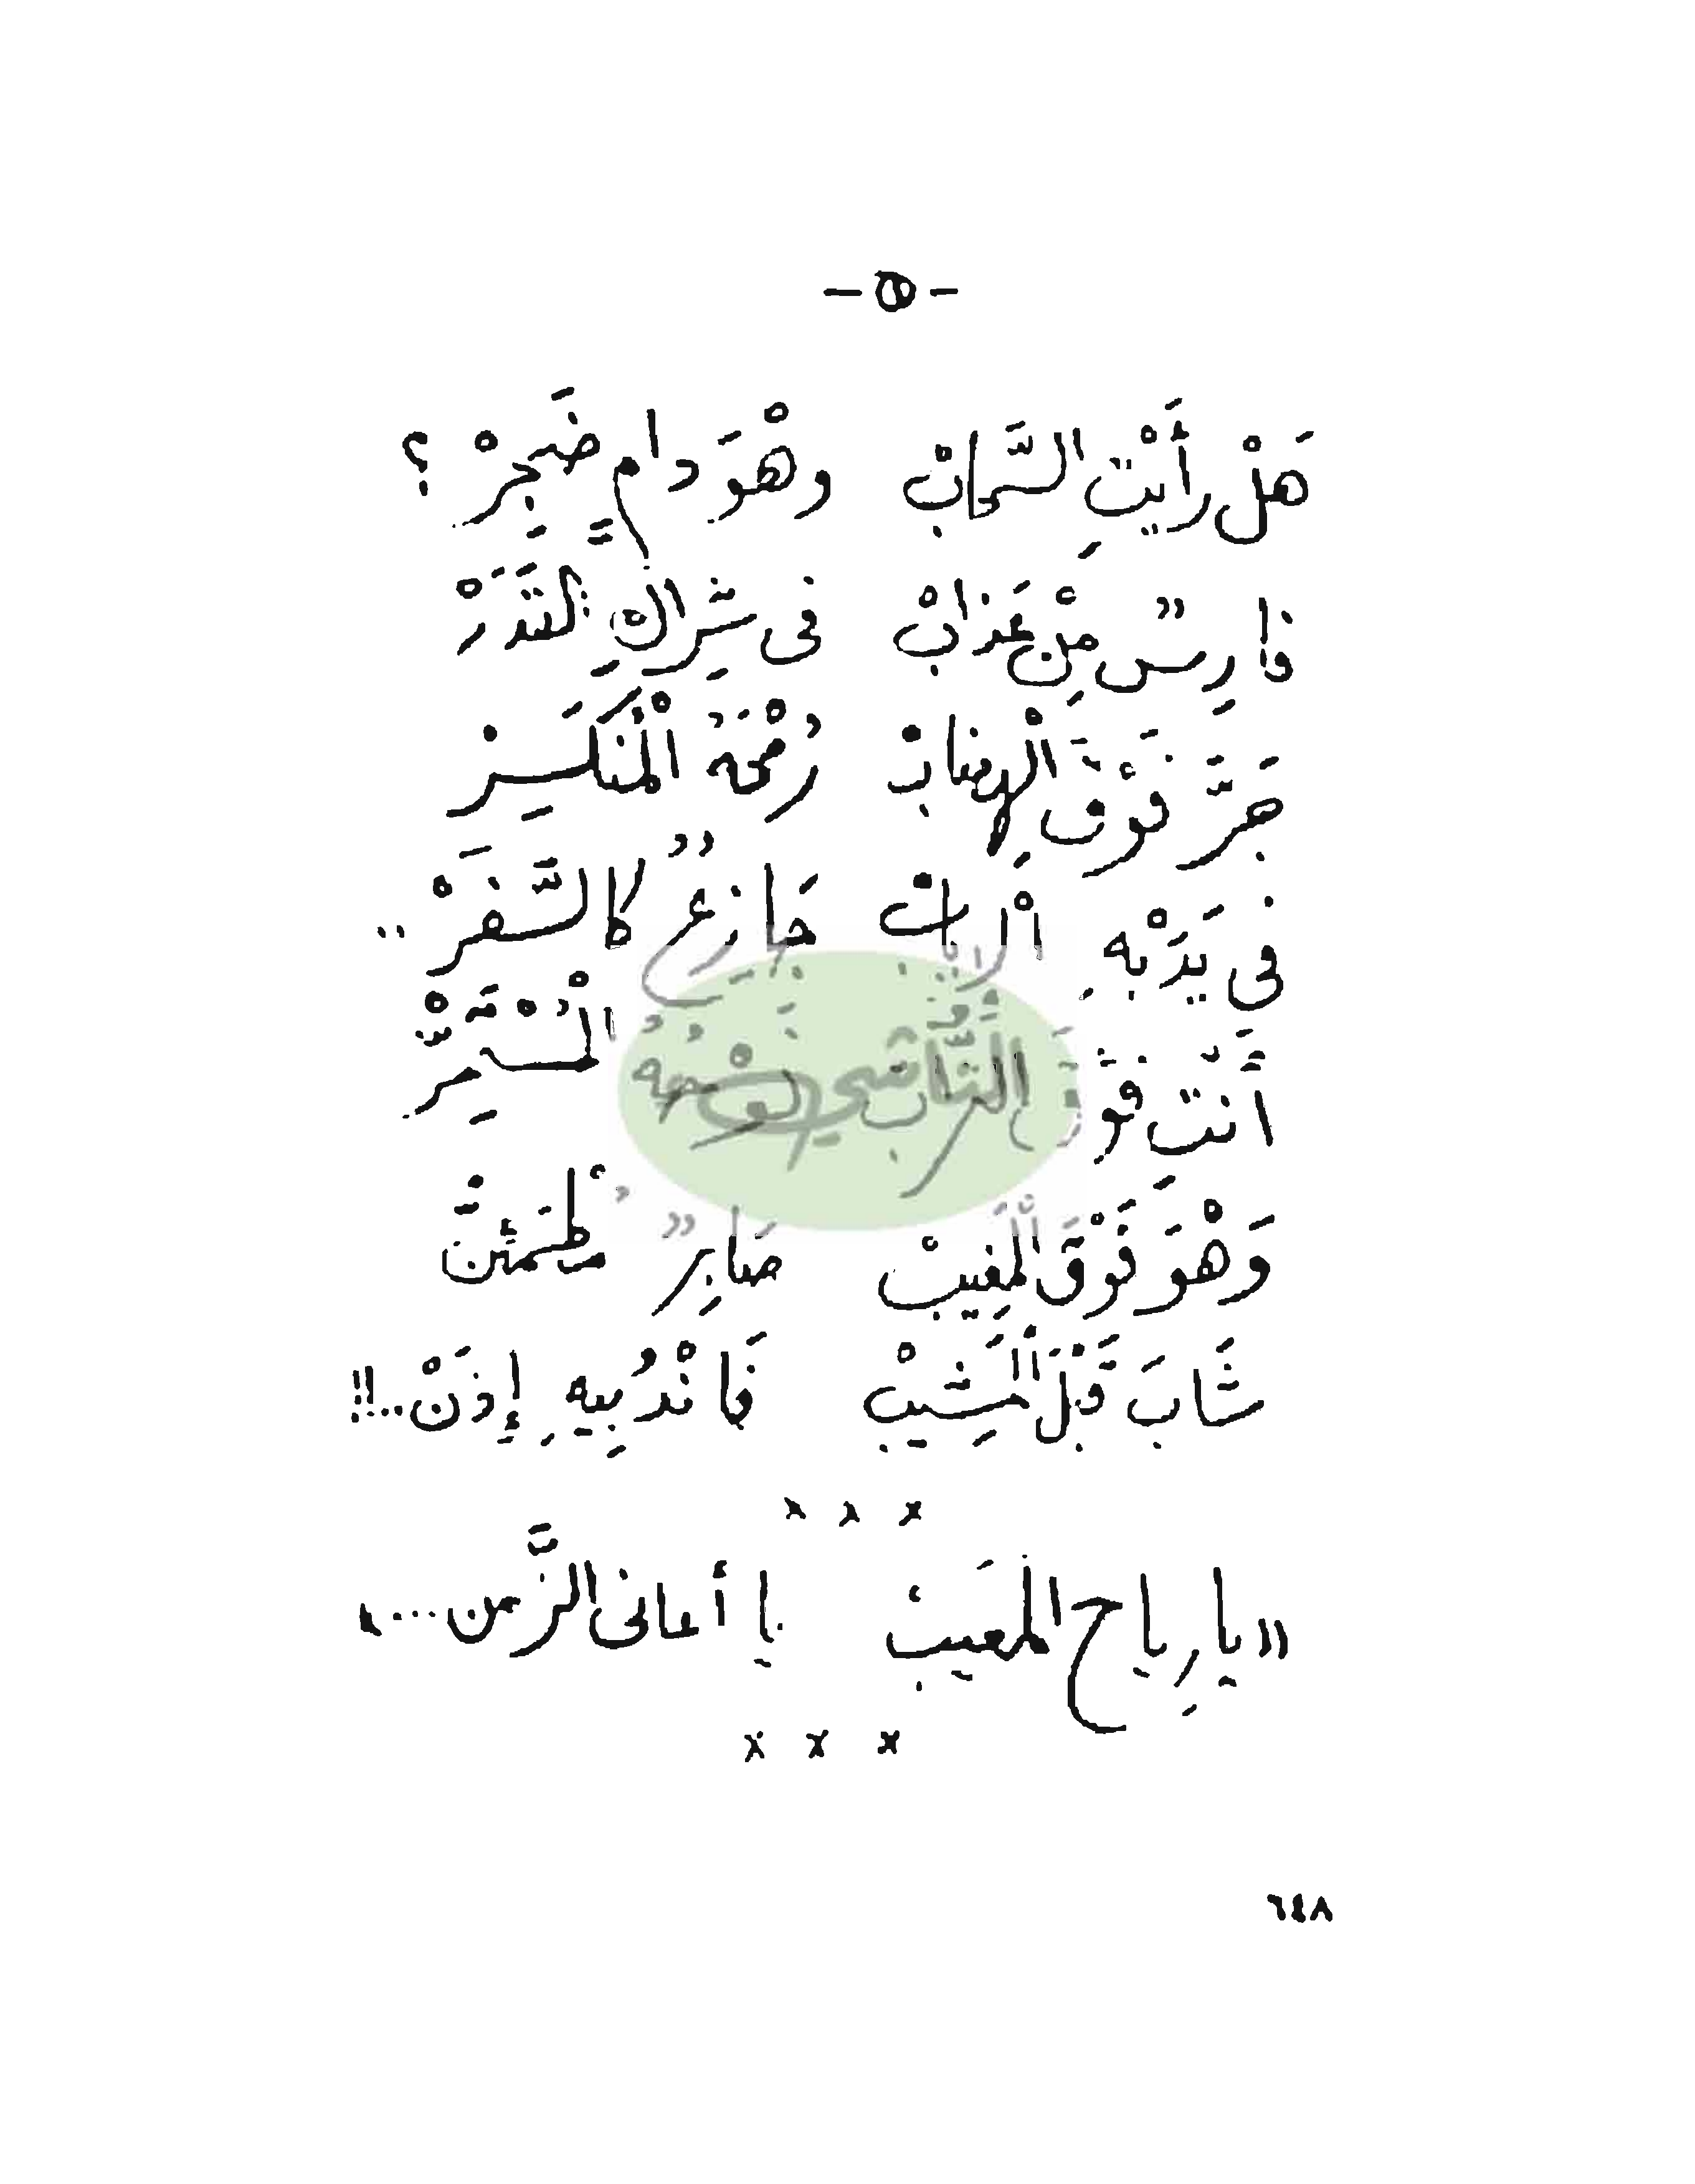 - ٥ -
هَلْ رَأَيْتِ السَّحَابْ وهْوَ دامٍ ضَجِرْ ؟
فارِسٌ مِنْ عَذَابْ فى شِرَاكِ القَدَرْ
جَرَّ فَوْقَ الْهِضابْ رُمْحَهُ الْمُنْكَسِرْ
فى يَدَيْهِ جَازِعٌ كالسَّفَرْ ..
أَنْتِ فَوْقَ التُّرَابْ نَوْحُهُ الْمُسْتَمِرّْ
وَهْوَ فَوْقَ الْمَغِيبْ صَابِرٌ مُطْمَئِنّْ
شَابَ قَبْلَ الْمَشِيبْ فَانْدُبِيهِ إِذَنْ..!!
x x x
«يا رِياح المَغيبْ يا أغانى الزَّمن...»
x x x
٦٤٨